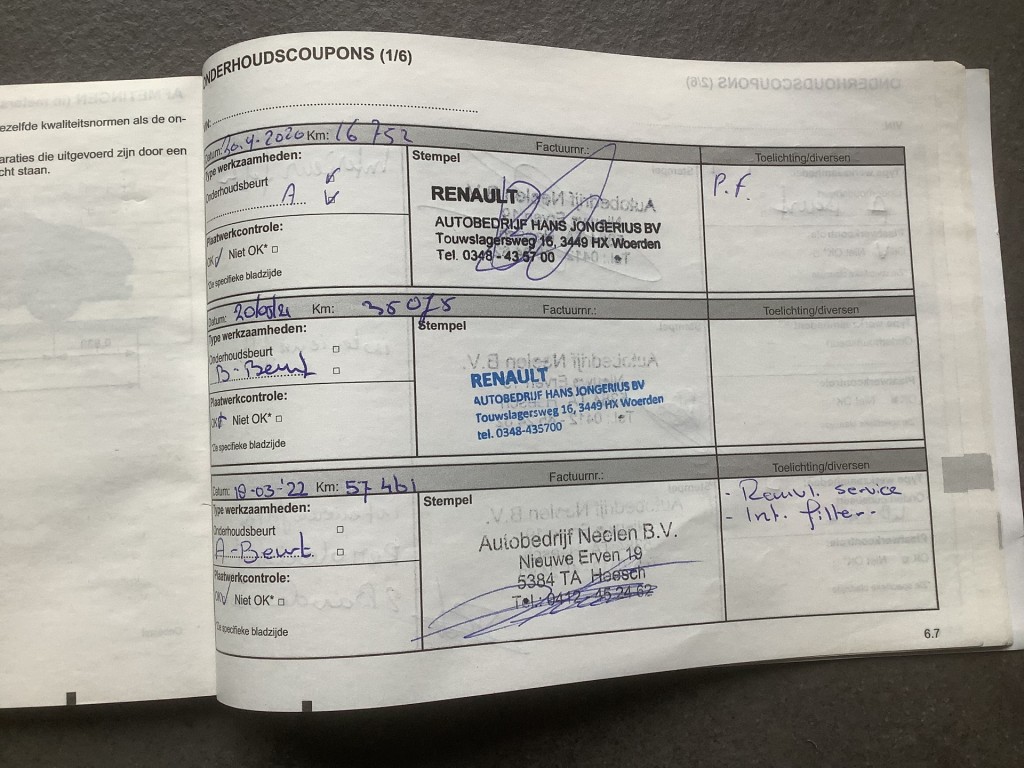 ezelfde kwaliteitsnormen als de on-
araties die uitgevoerd zijn door een
cht staan.
ONDERHOUDSCOUPONS (1/6)
Datum: 30.4-2020 Km: 16 752 Factuurnr.: Toelichting/diversen
Type werkzaamheden:
Onderhoudsbeurt
A
Plaatwerkcontrole:
OK Niet OK*
*De specifieke bladzijde
Stempel
RENAULT
AUTOBEDRIJF HANS JONGERIUS BV
Touwslagersweg 16, 3449 HX Woerden
Tel. 0348 - 43 57 00
P.F.
Datum: Km: 35075 Factuurnr.: Toelichting/diversen
Type werkzaamheden:
Onderhoudsbeurt
B-Beurt
Plaatwerkcontrole:
OK Niet OK*
*De specifieke bladzijde
Stempel
RENAULT
AUTOBEDRIJF HANS JONGERIUS BV
Touwslagersweg 16, 3449 HX Woerden
tel. 0348-435700
Datum: 18-03-'22 Km: 57461 Factuurnr.: Toelichting/diversen
Type werkzaamheden:
Onderhoudsbeurt
A-Beurt.
Plaatwerkcontrole:
OK Niet OK*
*De specifieke bladzijde
Stempel
Autobedrijf Neelen B.V.
Nieuwe Erven 19
5384 TA Heesch
Tel.: 0412 - 45 24 62
- Remvl. service
- Int. filter
6.7